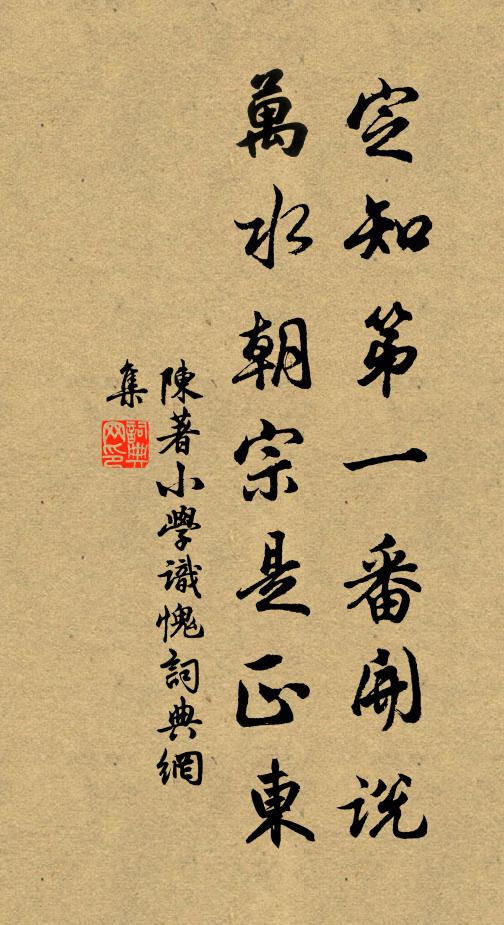 定知第一番開説
萬水朝宗是正東
陳著小學識愧詞典網
集
詞典
网印